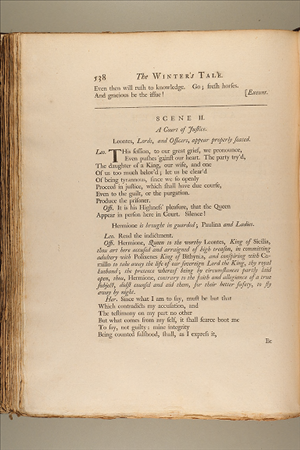 538 The WINTER's TALE.
Even then will rush to knowledge. Go; fresh horses.
And gracious be the issue! [Exeunt.
SCENE II.
A Court of Justice.
Leontes, Lords, and Officers, appear properly seated.
Leo. THis session, to our great grief, we pronounce,
Even pushes 'gainst our heart. The party try'd,
The daughter of a King, our wife, and one
Of us too much belov'd; let us be clear'd
Of being tyrannous, since we so openly
Proceed in justice, which shall have due course,
Even to the guilt, or the purgation.
Produce the prisoner.
Offi. It is his Highness' pleasure, that the Queen
Appear in person here in Court. Silence!
Hermione is brought in guarded; Paulina and Ladies.
Leo. Read the indictment.
Offi. Hermione, Queen to the worthy Leontes, King of Sicilia,
thou art here accused and arraigned of high treason, in committing
adultery with Polixenes King of Bithynia, and conspiring with Ca-
millo to take away the life of our sovereign Lord the King, thy royal
husband; the pretence whereof being by circumstances partly laid
open, thou, Hermione, contrary to the faith and allegiance of a true
subject, didst counsel and aid them, for their better safety, to fly
away by night.
Her. Since what I am to say, must be but that
Which contradicts my accusation, and
The testimony on my part no other
But what comes from my self, it shall scarce boot me
To say, not guilty: mine integrity
Being counted falshood, shall, as I express it,
Be